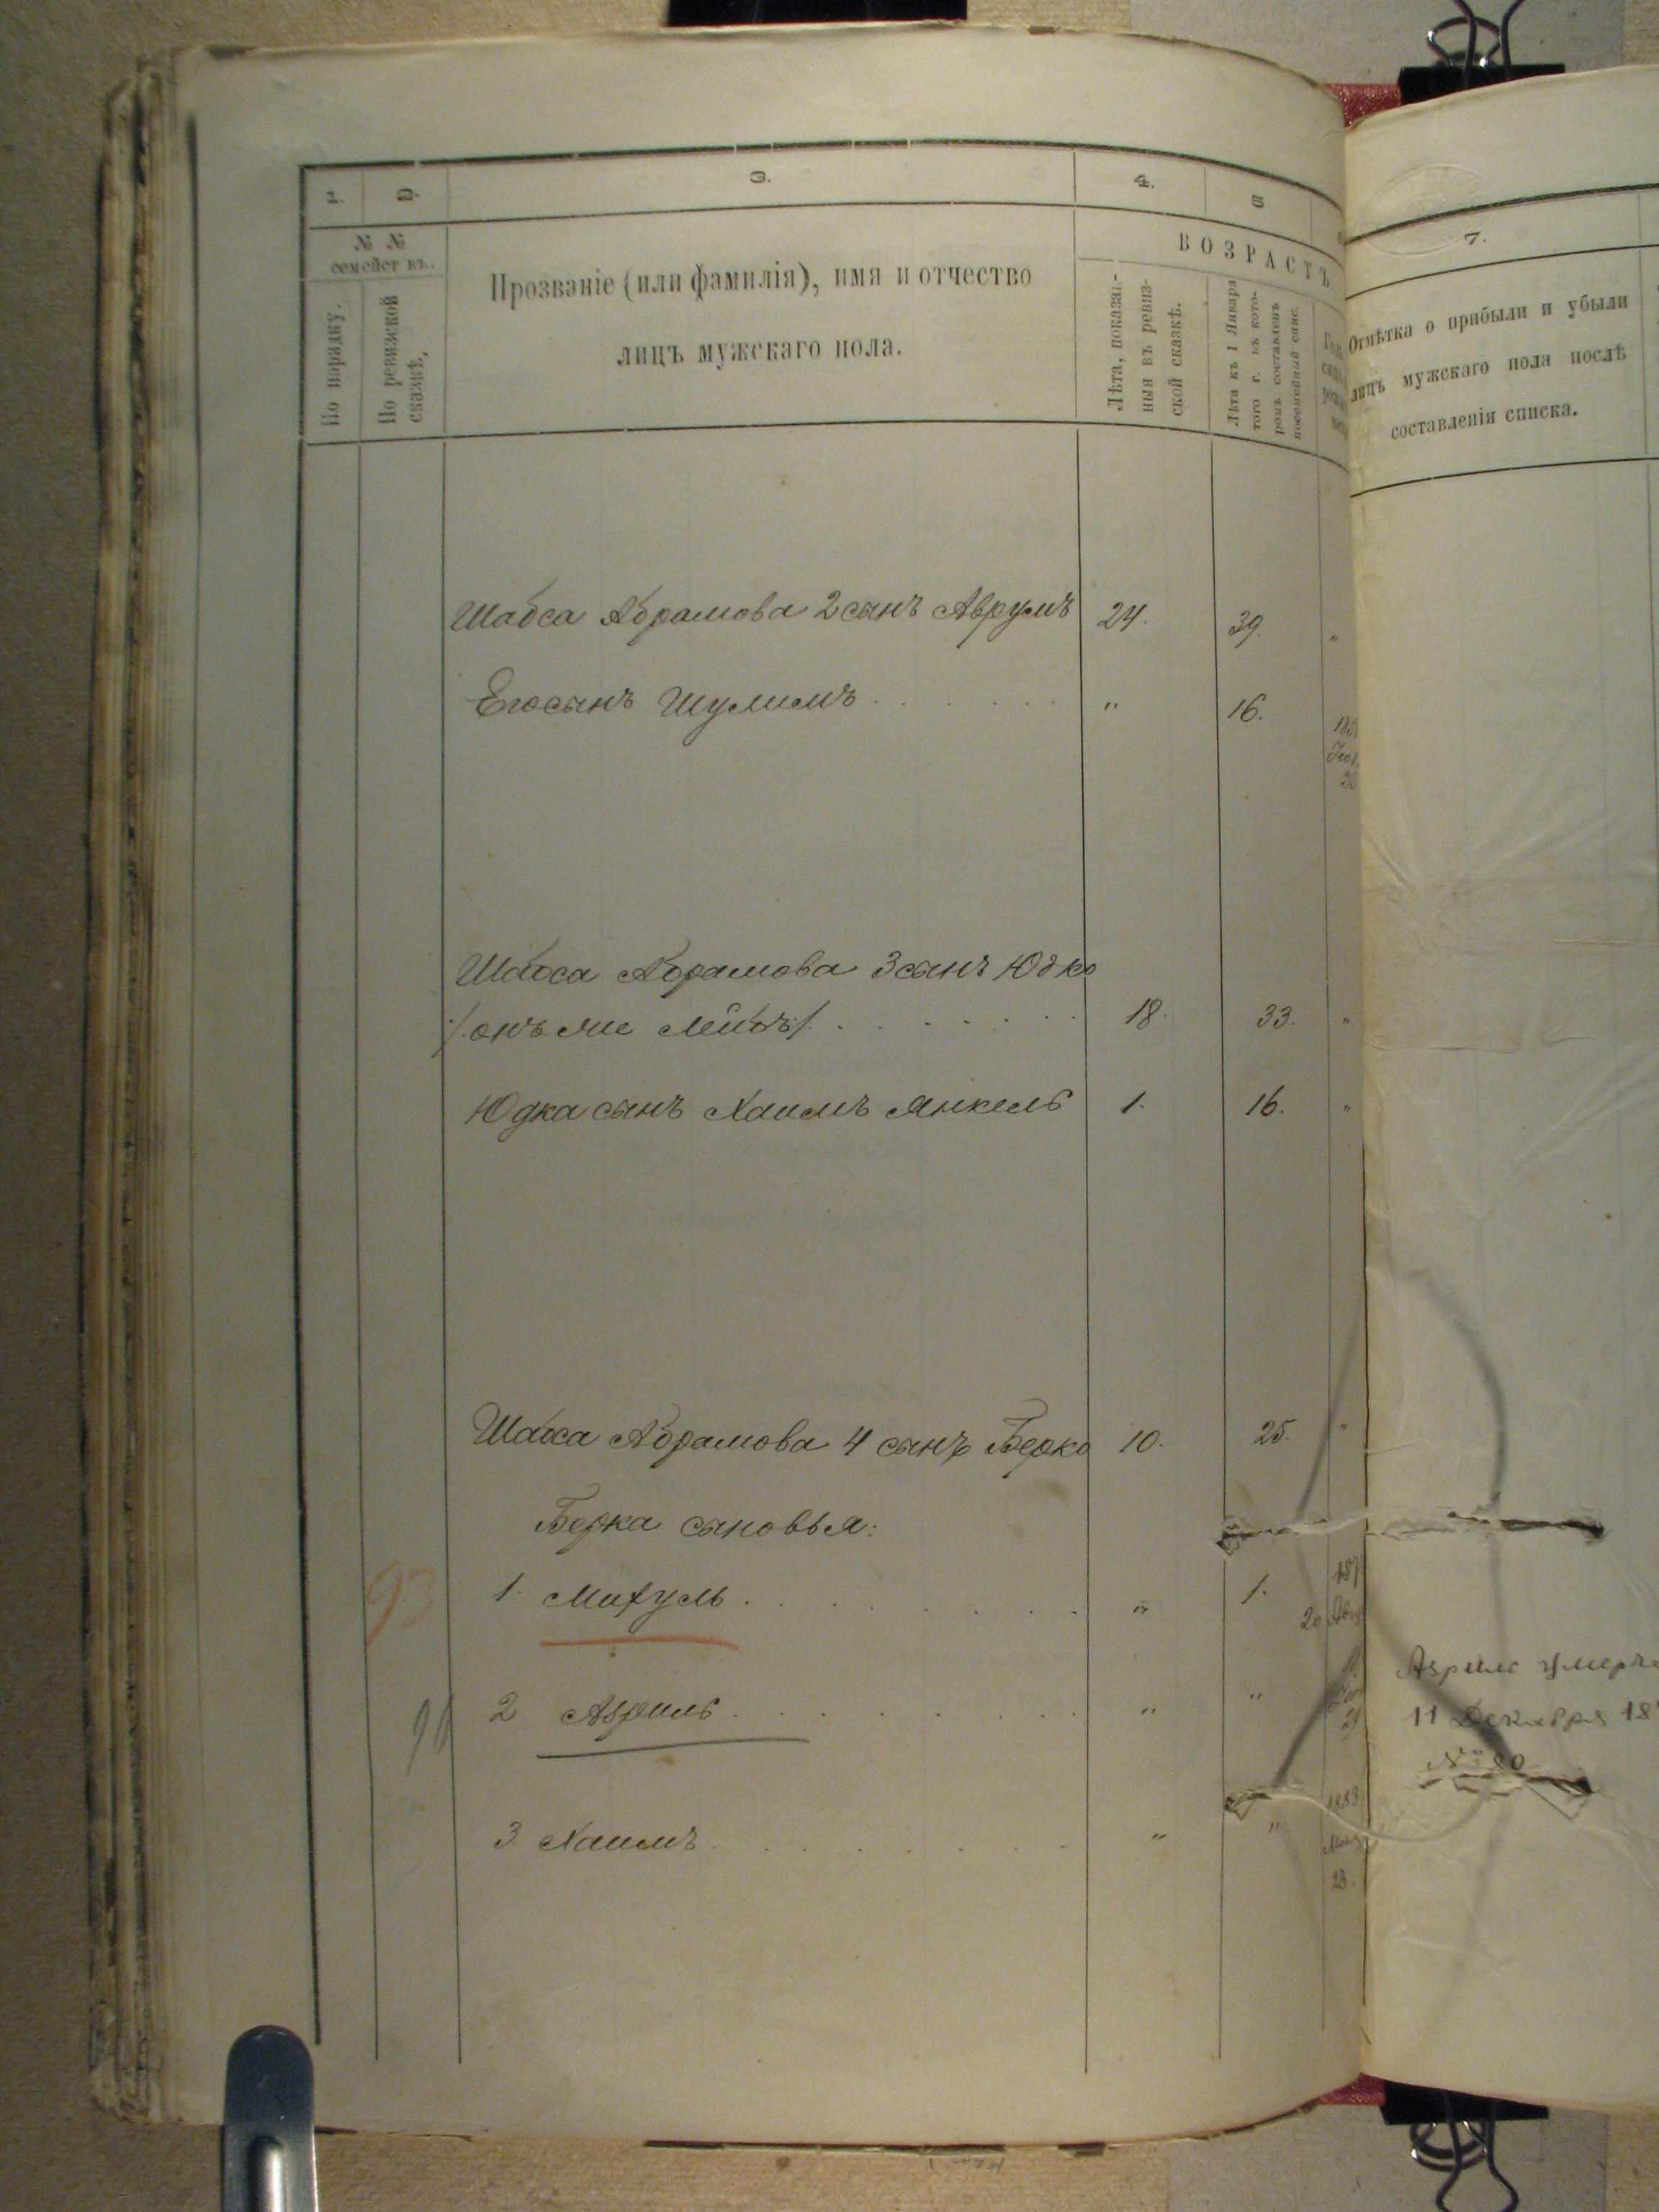 1. 2. 3. 4. 5
№ №
семействъ.
По порядку.
По ревизской сказкѣ.
Прозваніе (или фамилія), имя и отчество
лицъ мужскаго пола.
ВОЗРАСТЪ
Лѣта, показан-
ныя въ ревиз-
ской сказкѣ.
Лѣта къ 1 Января
того г. въ кото-
ромъ составленъ
посемейный спис.
7.
Отмѣтка о прибыли и убыли
лицъ мужскаго пола послѣ
составленія списка.
Шабса Абрамова 2 сынъ Аврумъ 24. 39. "
Его сынъ Шулимъ . . . . . . . " 16.
Шабса Абрамова 3 сынъ Юдко
/:онъ же Лейбъ:/ . . . . . . . 18. 33. "
Юдка сынъ Хаимъ Янкель 1. 16. "
Шабса Абрамова 4 сынъ Берко 10. 25. "
Берка сыновья:
93 1. Михуль . . . . . . . . " 1.
20 Авг
2 Азриль . . . . . . . . " "
Азриль умеръ
11 Декабря 18
№ 80
3 Хаимъ . . . . . . . . " " 1883
23.